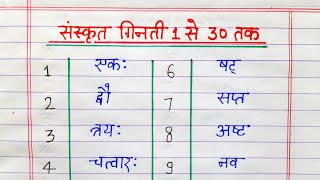 संस्कृत गिनती 1 से 30 तक
1 एकः 6 षट्
2 द्वौ 7 सप्त
3 त्रयः 8 अष्ट
4 चत्वारः 9 नव